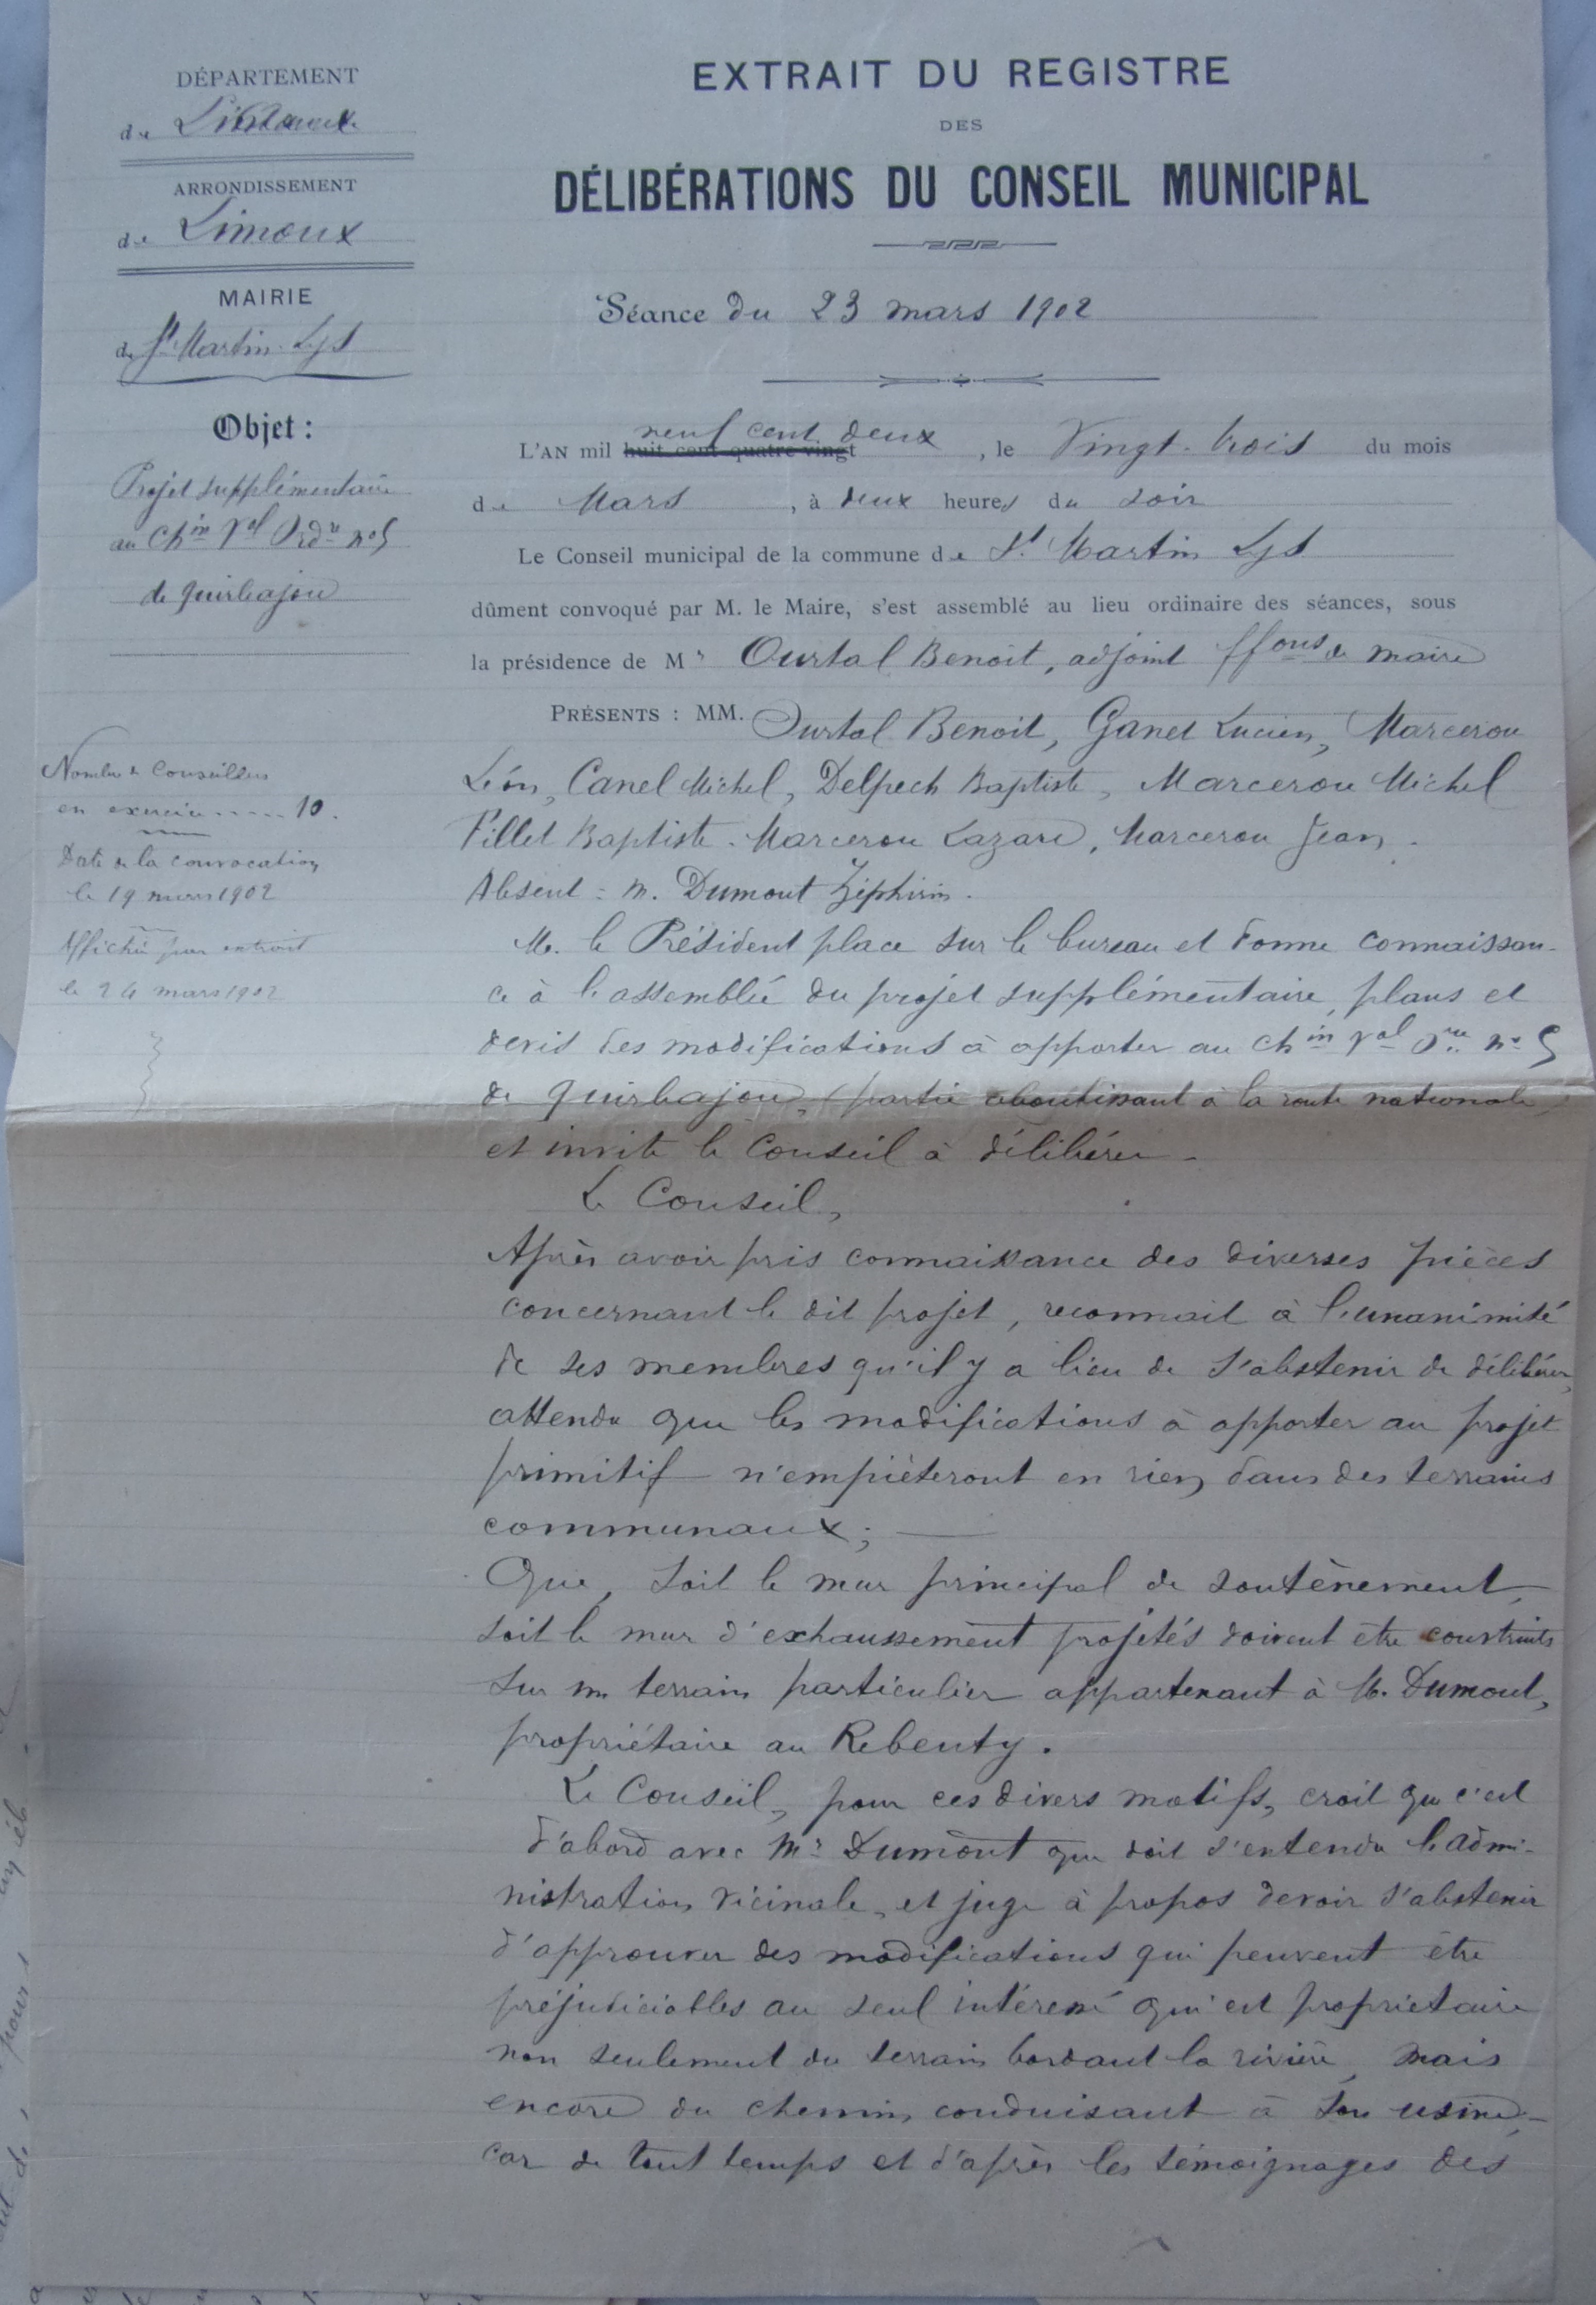 DÉPARTEMENT
de
ARRONDISSEMENT
de Limoux
MAIRIE
de St Martin Lys
Objet :
Projet supplémentaire
au Chin Val Ordre no 5
de Quirbajou
Nombre de Conseillers
en exercice ..... 10.
Date de la convocation
le 19 mars 1902
Affiché par extrait
le 24 mars 1902
EXTRAIT DU REGISTRE
DES
DÉLIBÉRATIONS DU CONSEIL MUNICIPAL
Séance du 23 mars 1902
neuf cent deux
L'AN mil huit cent quatre-vingt , le Vingt-trois du mois
de Mars , à deux heures du soir
Le Conseil municipal de la commune de St Martin Lys
dûment convoqué par M. le Maire, s'est assemblé au lieu ordinaire des séances, sous
la présidence de Mr Ourtal Benoit, adjoint ffons de maire
PRÉSENTS : MM. Ourtal Benoit, Ganet Lucien, Marcerou
Léon, Canel Michel, Delpech Baptiste, Marcerou Michel
Fillet Baptiste. Marcerou Lazare, Marcerou Jean.
Absent : M. Dumont Zéphirin.
M. le Président place sur le bureau et donne connaissan-
ce à l'assemblée du projet supplémentaire, plans et
devis des modifications à apporter au chin val Ore no 5
de Quirbajou, partie aboutissant à la route nationale,
et invite le Conseil à délibérer -
Le Conseil,
Après avoir pris connaissance des diverses pièces
concernant le dit projet, reconnait à l'unanimité
de ses membres qu'il y a lieu de s'abstenir de délibérer,
attendu que les modifications à apporter au projet
primitif n'empièteront en rien dans des terrains
communaux ;
Que, soit le mur principal de soutènement,
soit le mur d'exhaussement projetés doivent être construits
sur un terrain particulier appartenant à M. Dumont,
propriétaire au Rebenty.
Le Conseil, pour ces divers motifs, croit que c'est
d'abord avec Mr Dumont que doit s'entendre l'admi-
nistration vicinale, et juge à propos devoir s'abstenir
d'approuver des modifications qui peuvent être
préjudiciables au seul intéressé qui est propriétaire
non seulement du terrain bordant la rivière, mais
encore du chemin conduisant à son usine,
car de tout temps et d'après les témoignages des